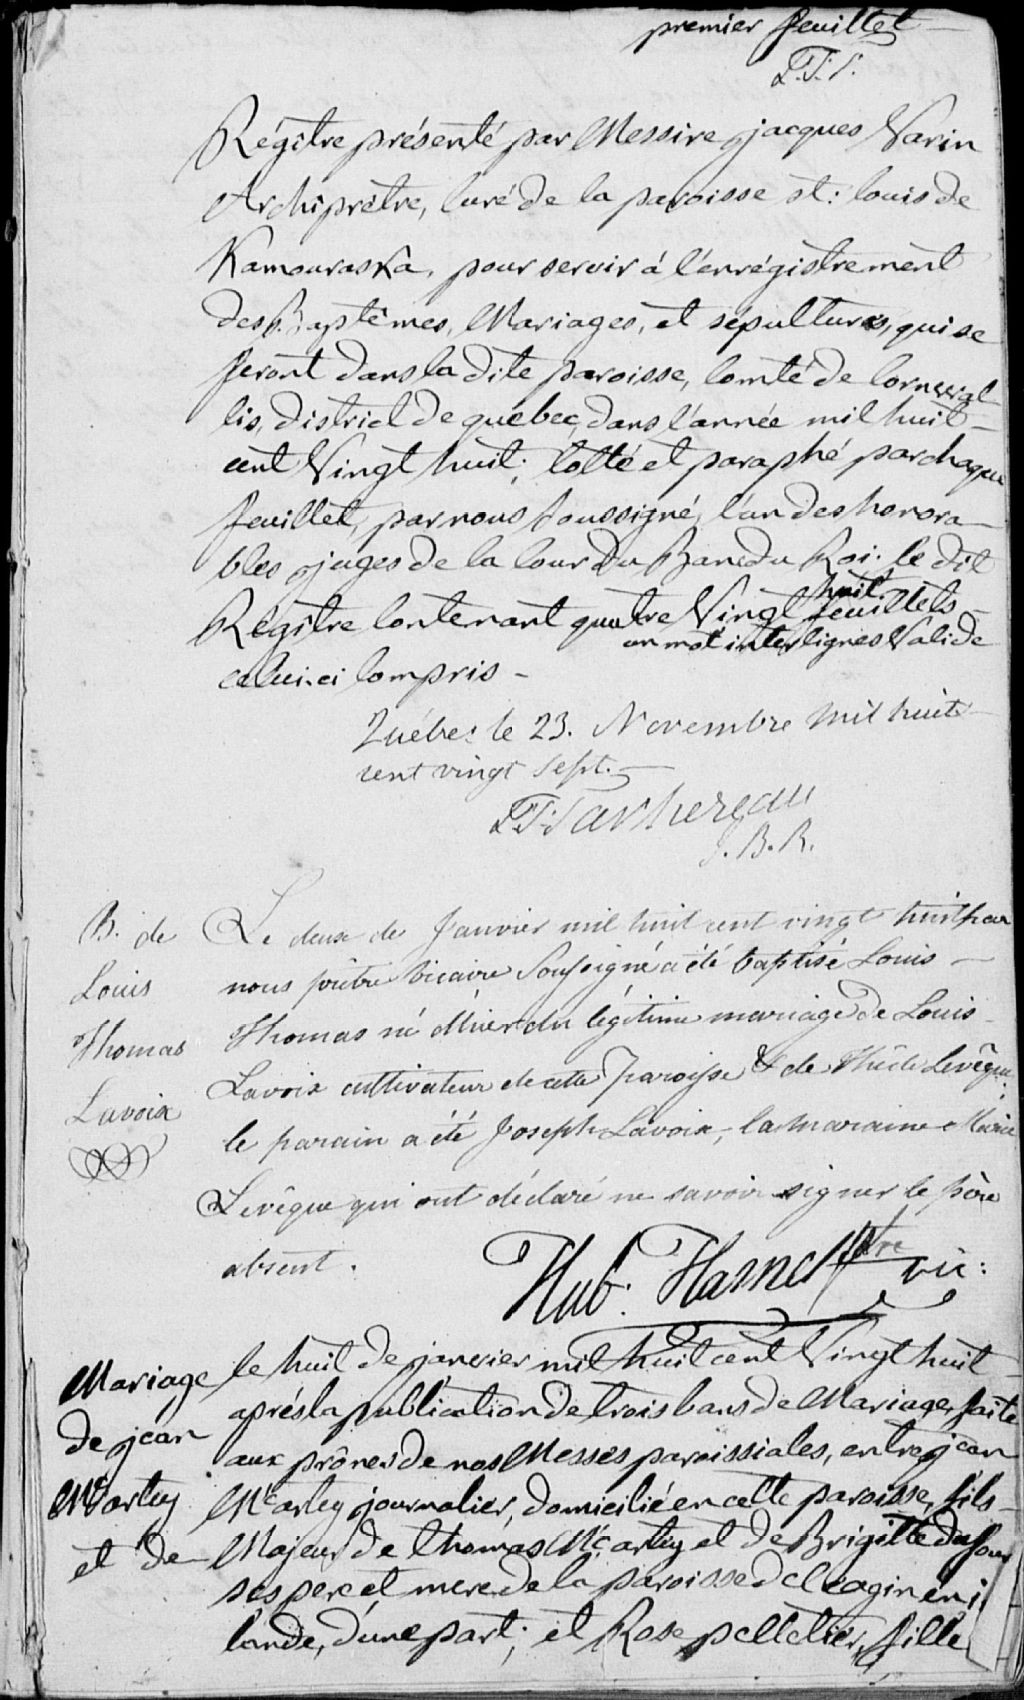 premier feuillet
T.T.
Régitre présenté par Messire jacques Varin
Archiprêtre, Curé de la paroisse st: louis de
Kamouraska, pour servir á l'enrégistrement
des Baptêmes, Mariages, et sépultures, qui se
feront dans la dite paroisse, Comté de Cornwal
lis, district de quebec, dans l'année mil huit
cent Vingt huit; Cotté et paraphé par chaque
feuillet, par nous Soussigné, l'un des honora-
bles juges de la Cour du Banc du Roi. le dit
huit
Régitre Contenant quatre Vingt feuillets
un mot interlignes Valide
celui-ci Compris -
Québec le 23. Novembre mil huit
cent vingt sept. -
T.T. Taschereau
J.B.R.
B. de
Louis
Thomas
Lavoix
Le deux de Janvier mil huit cent vingt huit par
nous prêtre vicaire Soussigné a été baptisé Louis -
Thomas né d'hier du légitime mariage de Louis
Lavoix cultivateur de cette Paroisse & de Levêque
le parain a été Joseph Lavoix, la maraine Marie
Levêque qui ont déclaré ne savoir signer le père
absent.
Hub. Ptre vic:
Mariage
de jean
McCarty
et de
le huit de janvier mil huit cent Vingt huit
aprés la publication de trois bans de Mariage, faite
aux prônes de nos Messes paroissiales, entre jean
McCarty journalier, domicilié en cette paroisse, fils
Majeur de thomas McCarty et de Brigitte
ses pere et mere de la paroisse de en i
lande, d'une part; et Rose pelletier, fille